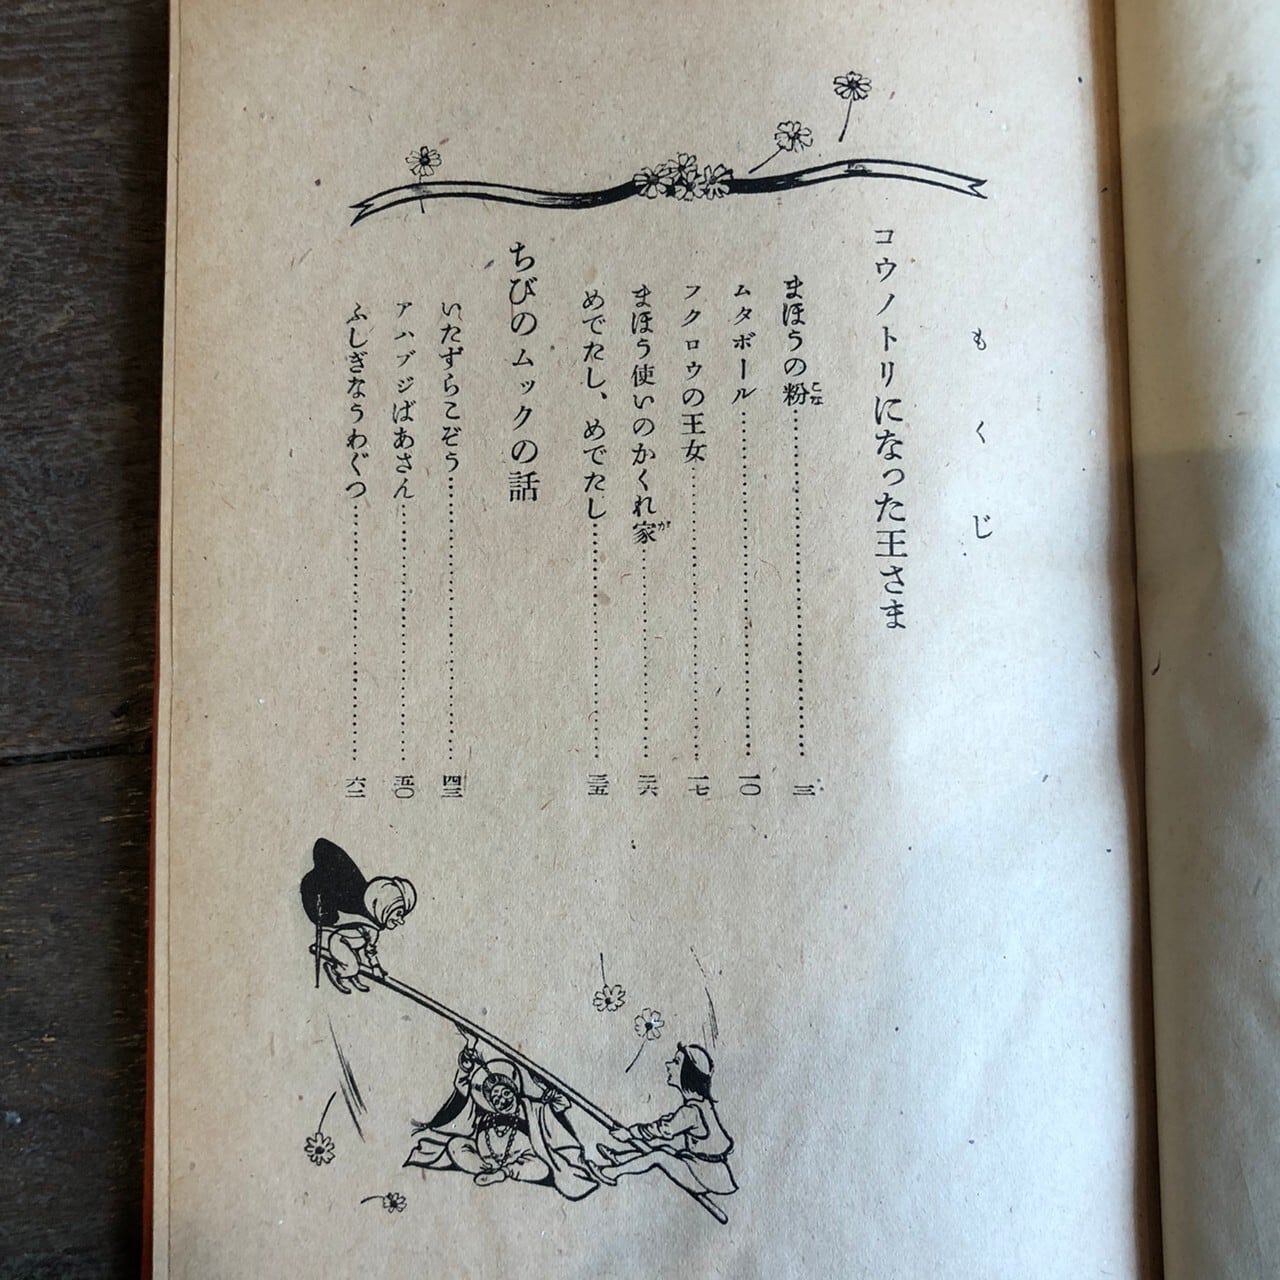 もくじ
コウノトリになった王さま
まほうの粉こな……………三
ムタボール……………一〇
フクロウの王女……………一七
まほう使いのかくれ家が……………二六
めでたし、めでたし……………三五
ちびのムックの話
いたずらこぞう……………四三
アハブジばあさん……………五〇
ふしぎなうわぐつ……………六二